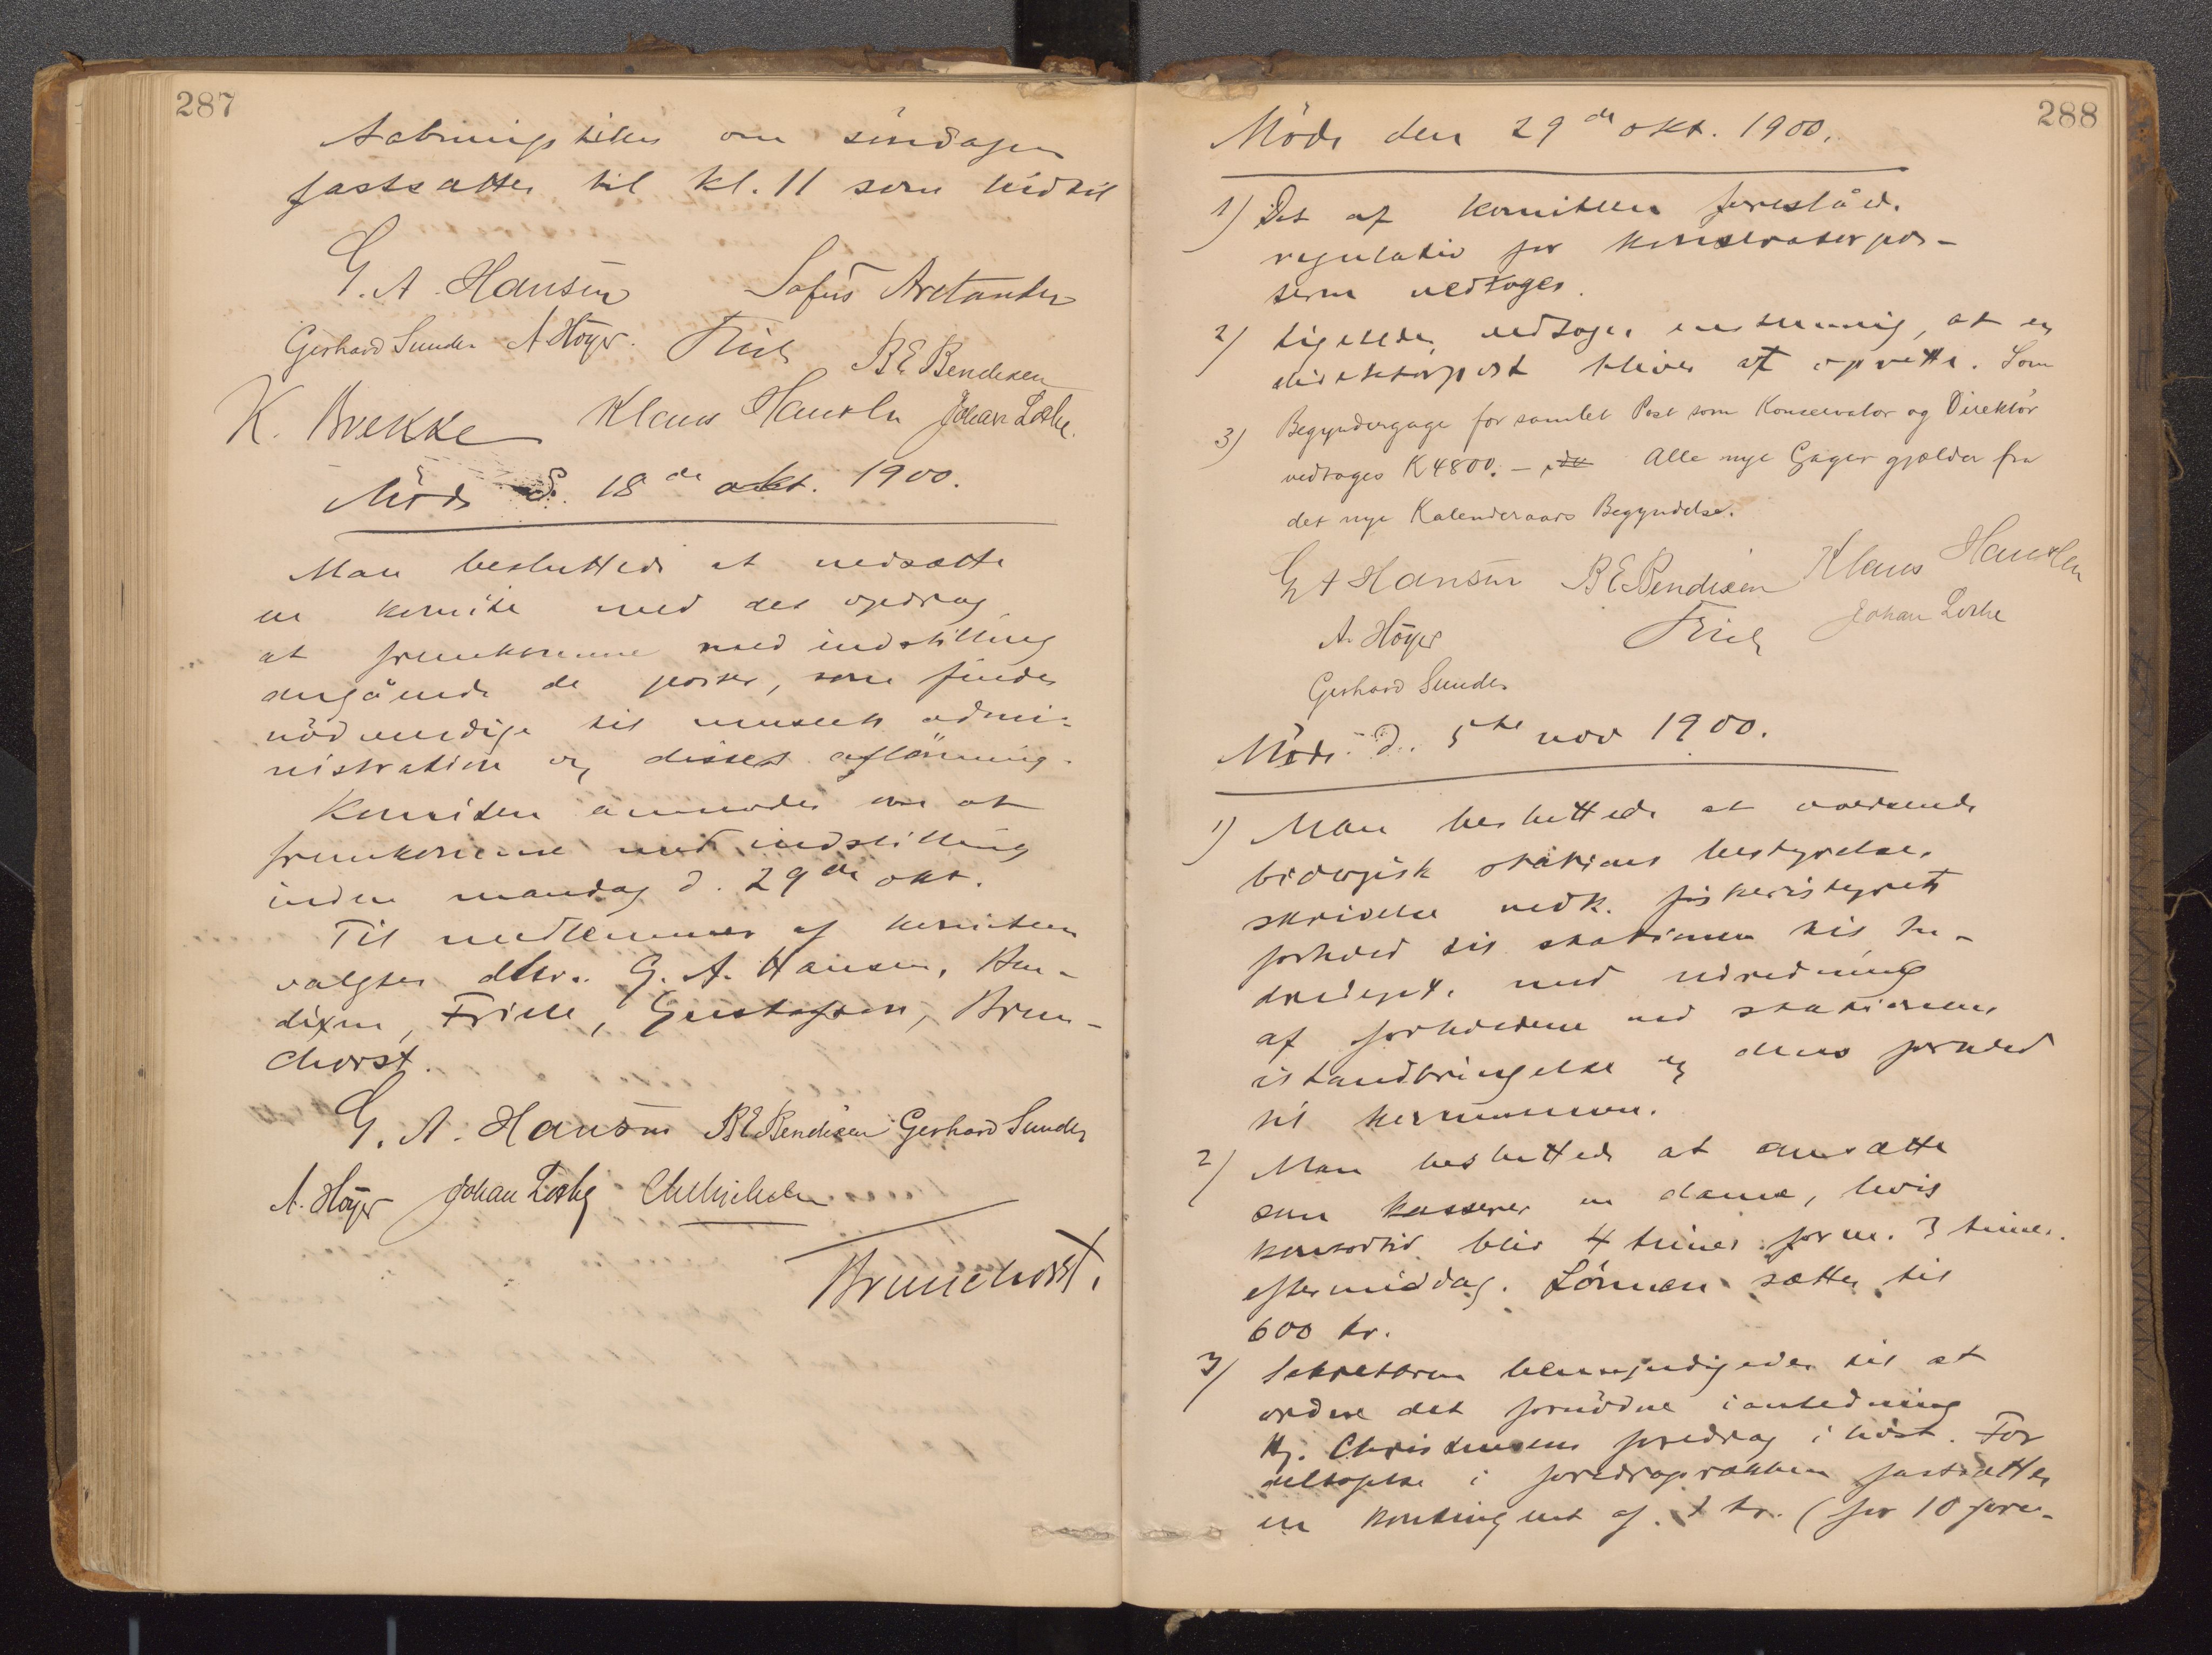 287
Aabningstiden om söndagen
fastsattes til kl. 11 som hidtil
G. A. Hansen Sofus Arctander
Gerhard Sunde A Höyer. Friele BE Bendixen
K. Brekke Klaus Hanssen Johan Lothe.
Möde d. 18de okt. 1900.
Man besluttede at nedsætte
en komite med det opdrag
at fremkomme med indstilling
angående de poster, som findes
nödvendige til museets admi-
nistration og disses aflönning.
Komiteen anmodes om at
fremkomme med indstilling
inden mandag d. 29de okt.
Til medlemmer af komiteen
valgtes dhrr. G. A. Hansen, Ben-
dixen, Friele, Gustafson, Brun-
chorst.
G. A. Hansen BE Bendixen Gerhard Sunde
A. Höyer Johan Lothe
Brunchorst.
288
Möde den 29de okt. 1900.
1) Det af komiteen foreslåede
regulativ for konservatorpos-
terne vedtoges.
2) Ligeledes vedtoges enstemmig, at en
direktörpost bliver at oprette. Som
3) Begyndergage for samlet Post som Konservator og Direktör
vedtages K 4800. – Alle nye Gager gjælder fra
det nye Kalenderaars Begyndelse.
G A Hansen BE Bendixen Klaus Hanssen
A. Höyer Friele Johan Lothe
Gerhard Sunde
Möde d. 5te nov 1900.
1) Man besluttede at oversende
biologisk stations bestyrelses
skrivelse vedk. fiskeristyrets
forhold til stationen til In-
dredept. med udredning
af forholdene ved stationens
istandbringelse og dens forhold
til kommunen.
2) Man besluttede at ansætte
som kasserer en dame, hvis
kontortid blir 4 timer form. 3 timer
eftermiddag. Lönnen sættes til
600 kr.
3) Sekretæren bemyndigedes til at
ordne det fornödne i anledning
Hj. Christensens foredrag i höst. For
deltagelse i foredragsrækken fastsættes
en kontingent af 1 kr. (for 10 fore-